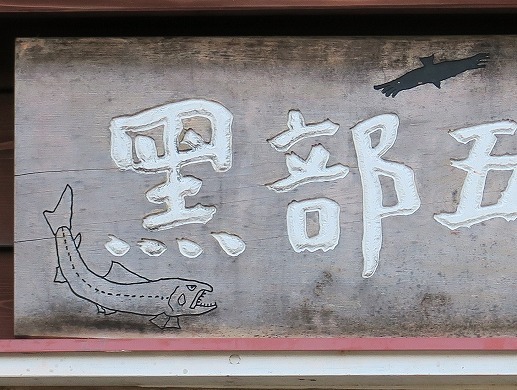 黒部五